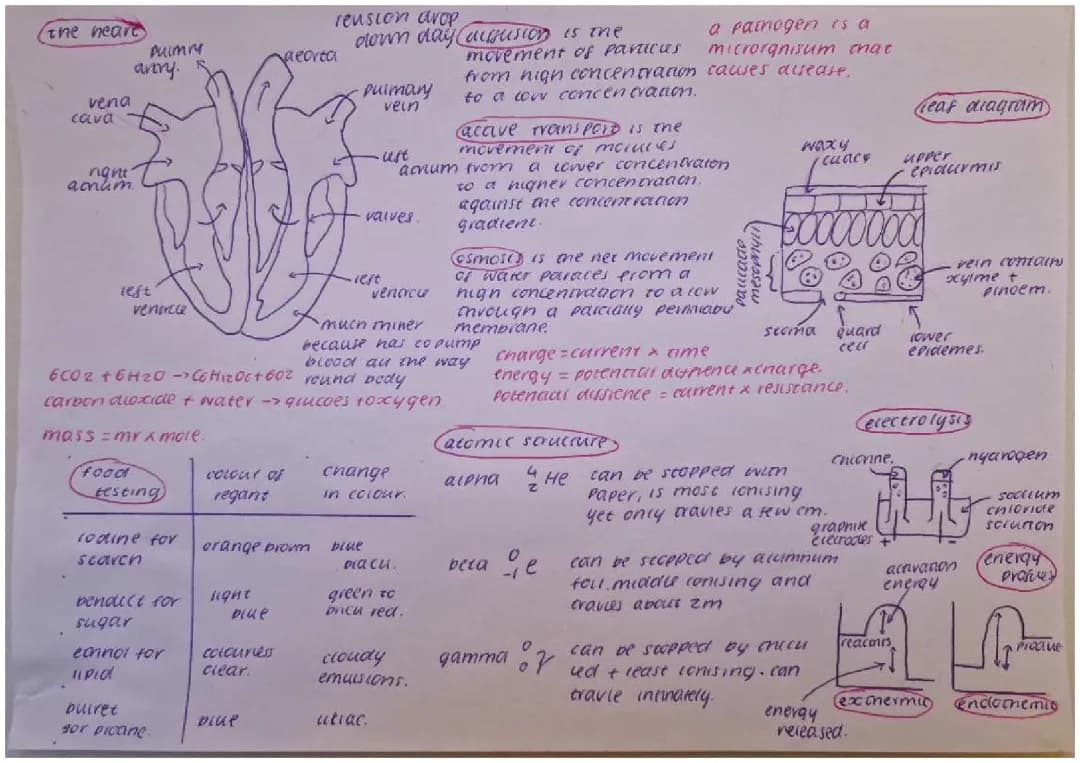 the heart
revision drop
down day
pulmry
artry.
aeorta
vena
cava
pulmary
vein
right
atrium.
left
atrium
valves.
left
ventrice
left
ventrice
much thiner
because has to pump
blood all the way
round body
diffusion is the
movement of particles
from high concentration
to a low concentration.
active transport is the
movement of molicules
from a lower concentration
to a higher concentration.
against the concentration
gradient.
osmosis is the net movement
of water particles from a
high concentration to a low
through a parcially permiable
membrane.
a pathogen is a
microrgnisum that
causes disease.
leaf diagram
waxy
cuticle
upper
epidurmis
pallicade
mesophyll
vein contains
xylme +
phloem.
stoma
guard
cell
lower
epidemes.
6CO2 + 6H2O → C6H12O6 + 6O2
carbon dioxide + water → glucoes + oxygen
mass = mr x mole.
charge = current x time
energy = potential diffrence x charge.
potential diffrence = current x resistance.
food
testing
colour of
regant
change
in colour.
iodine for
starch
orange brown
blue
black.
bendict for
sugar
light
blue
green to
brick red.
eathnol for
lipid
colourless
clear.
cloudy
emulsions.
buiret
for protine.
blue
lilac.
atomic structure
alpha 4 2 He can be stopped with
paper, is most ionising
yet only travles a few cm.
beta 0 -1 e can be stopped by aluminum
foil. middle ionising and
travles about 2m
gamma 0 0 γ can be stopped by thick
led + least ionising. can
travle infinately.
electrolysis
chlorine.
hyarogen
graphite
electrodes
+
-
sodium
chloride
solution
energy
profiles
activation
energy
reactnts
energy
released.
exothermic
produc
endothemic